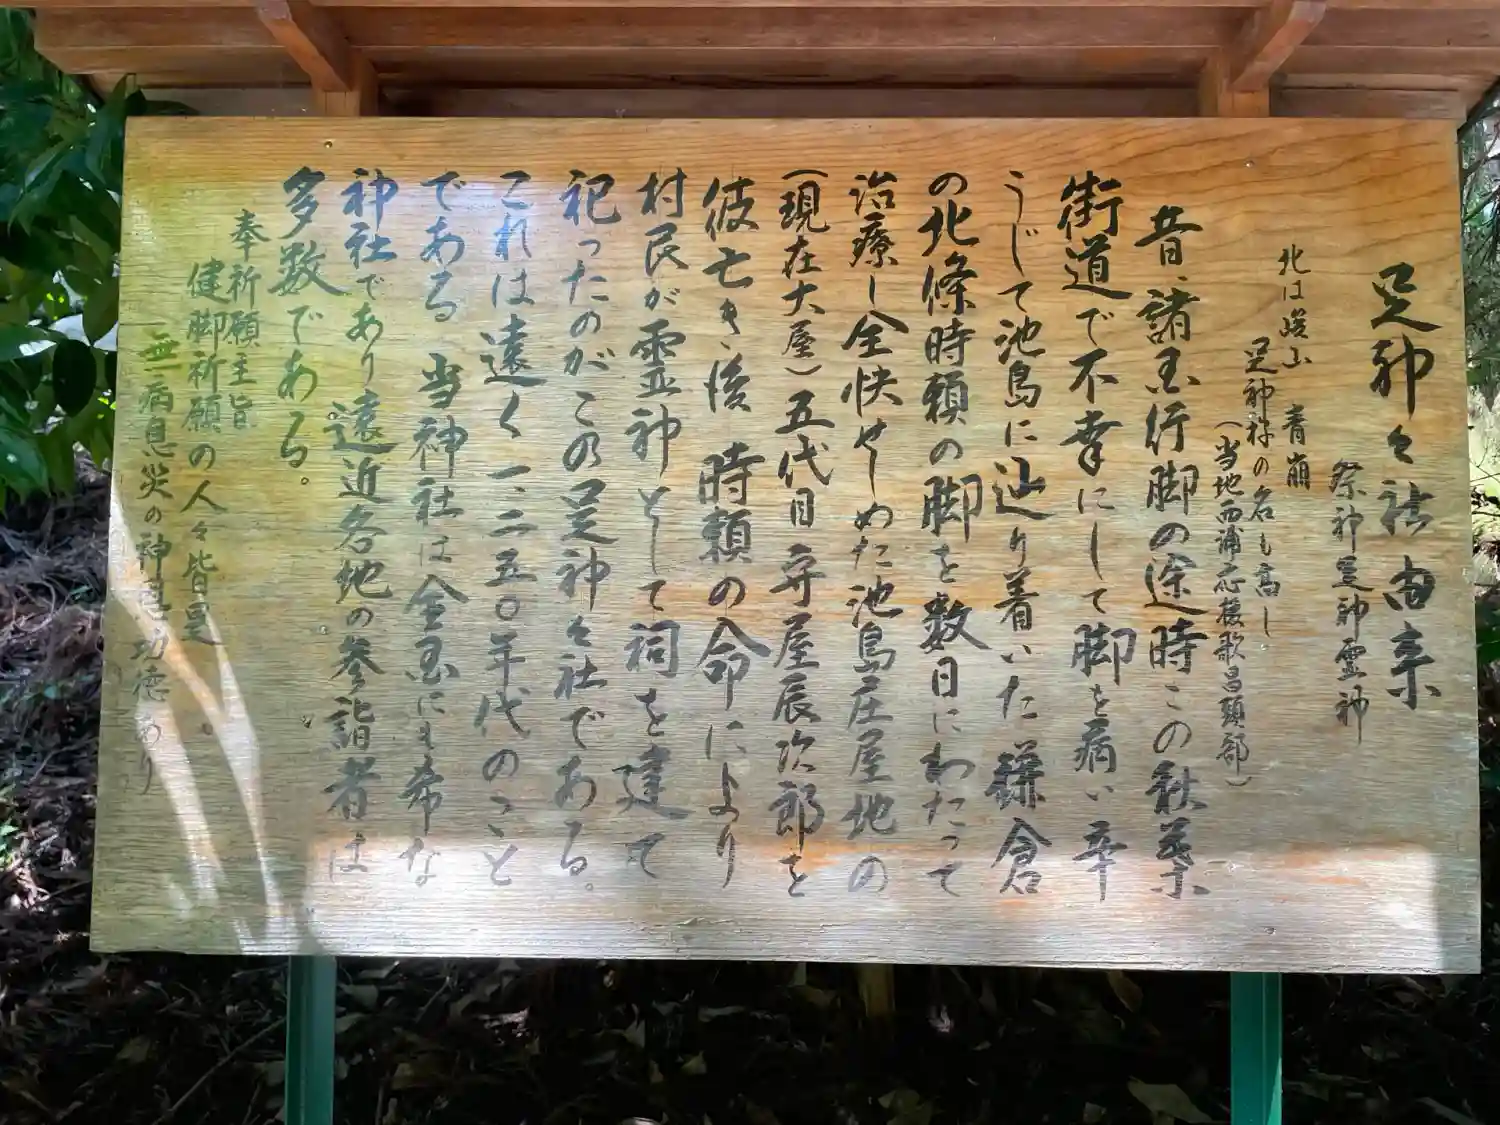 足神々社由来
祭神足神霊神
北は峻山 青崩
足神様の名も高し
(当地西浦応援歌昌頭部)
昔、諸国行脚の途時この秋葉
街道で不幸にして脚を病い辛
うじて池島に辿り着いた鎌倉
の北條時頼の脚を数日にわたって
治療し全快せしめた池島庄屋地の
(現在大屋)五代目 守屋辰次郎を
彼亡き後 時頼の命により
村民が霊神として祠を建て
祀ったのがこの足神々社である。
これは遠く一、二五〇年代のこと
である 当神社は全国にも希な
神社であり遠近各地の参詣者は
多数である。
奉祈願主旨
健脚祈願の人々皆是
無病息災の神是功徳あり